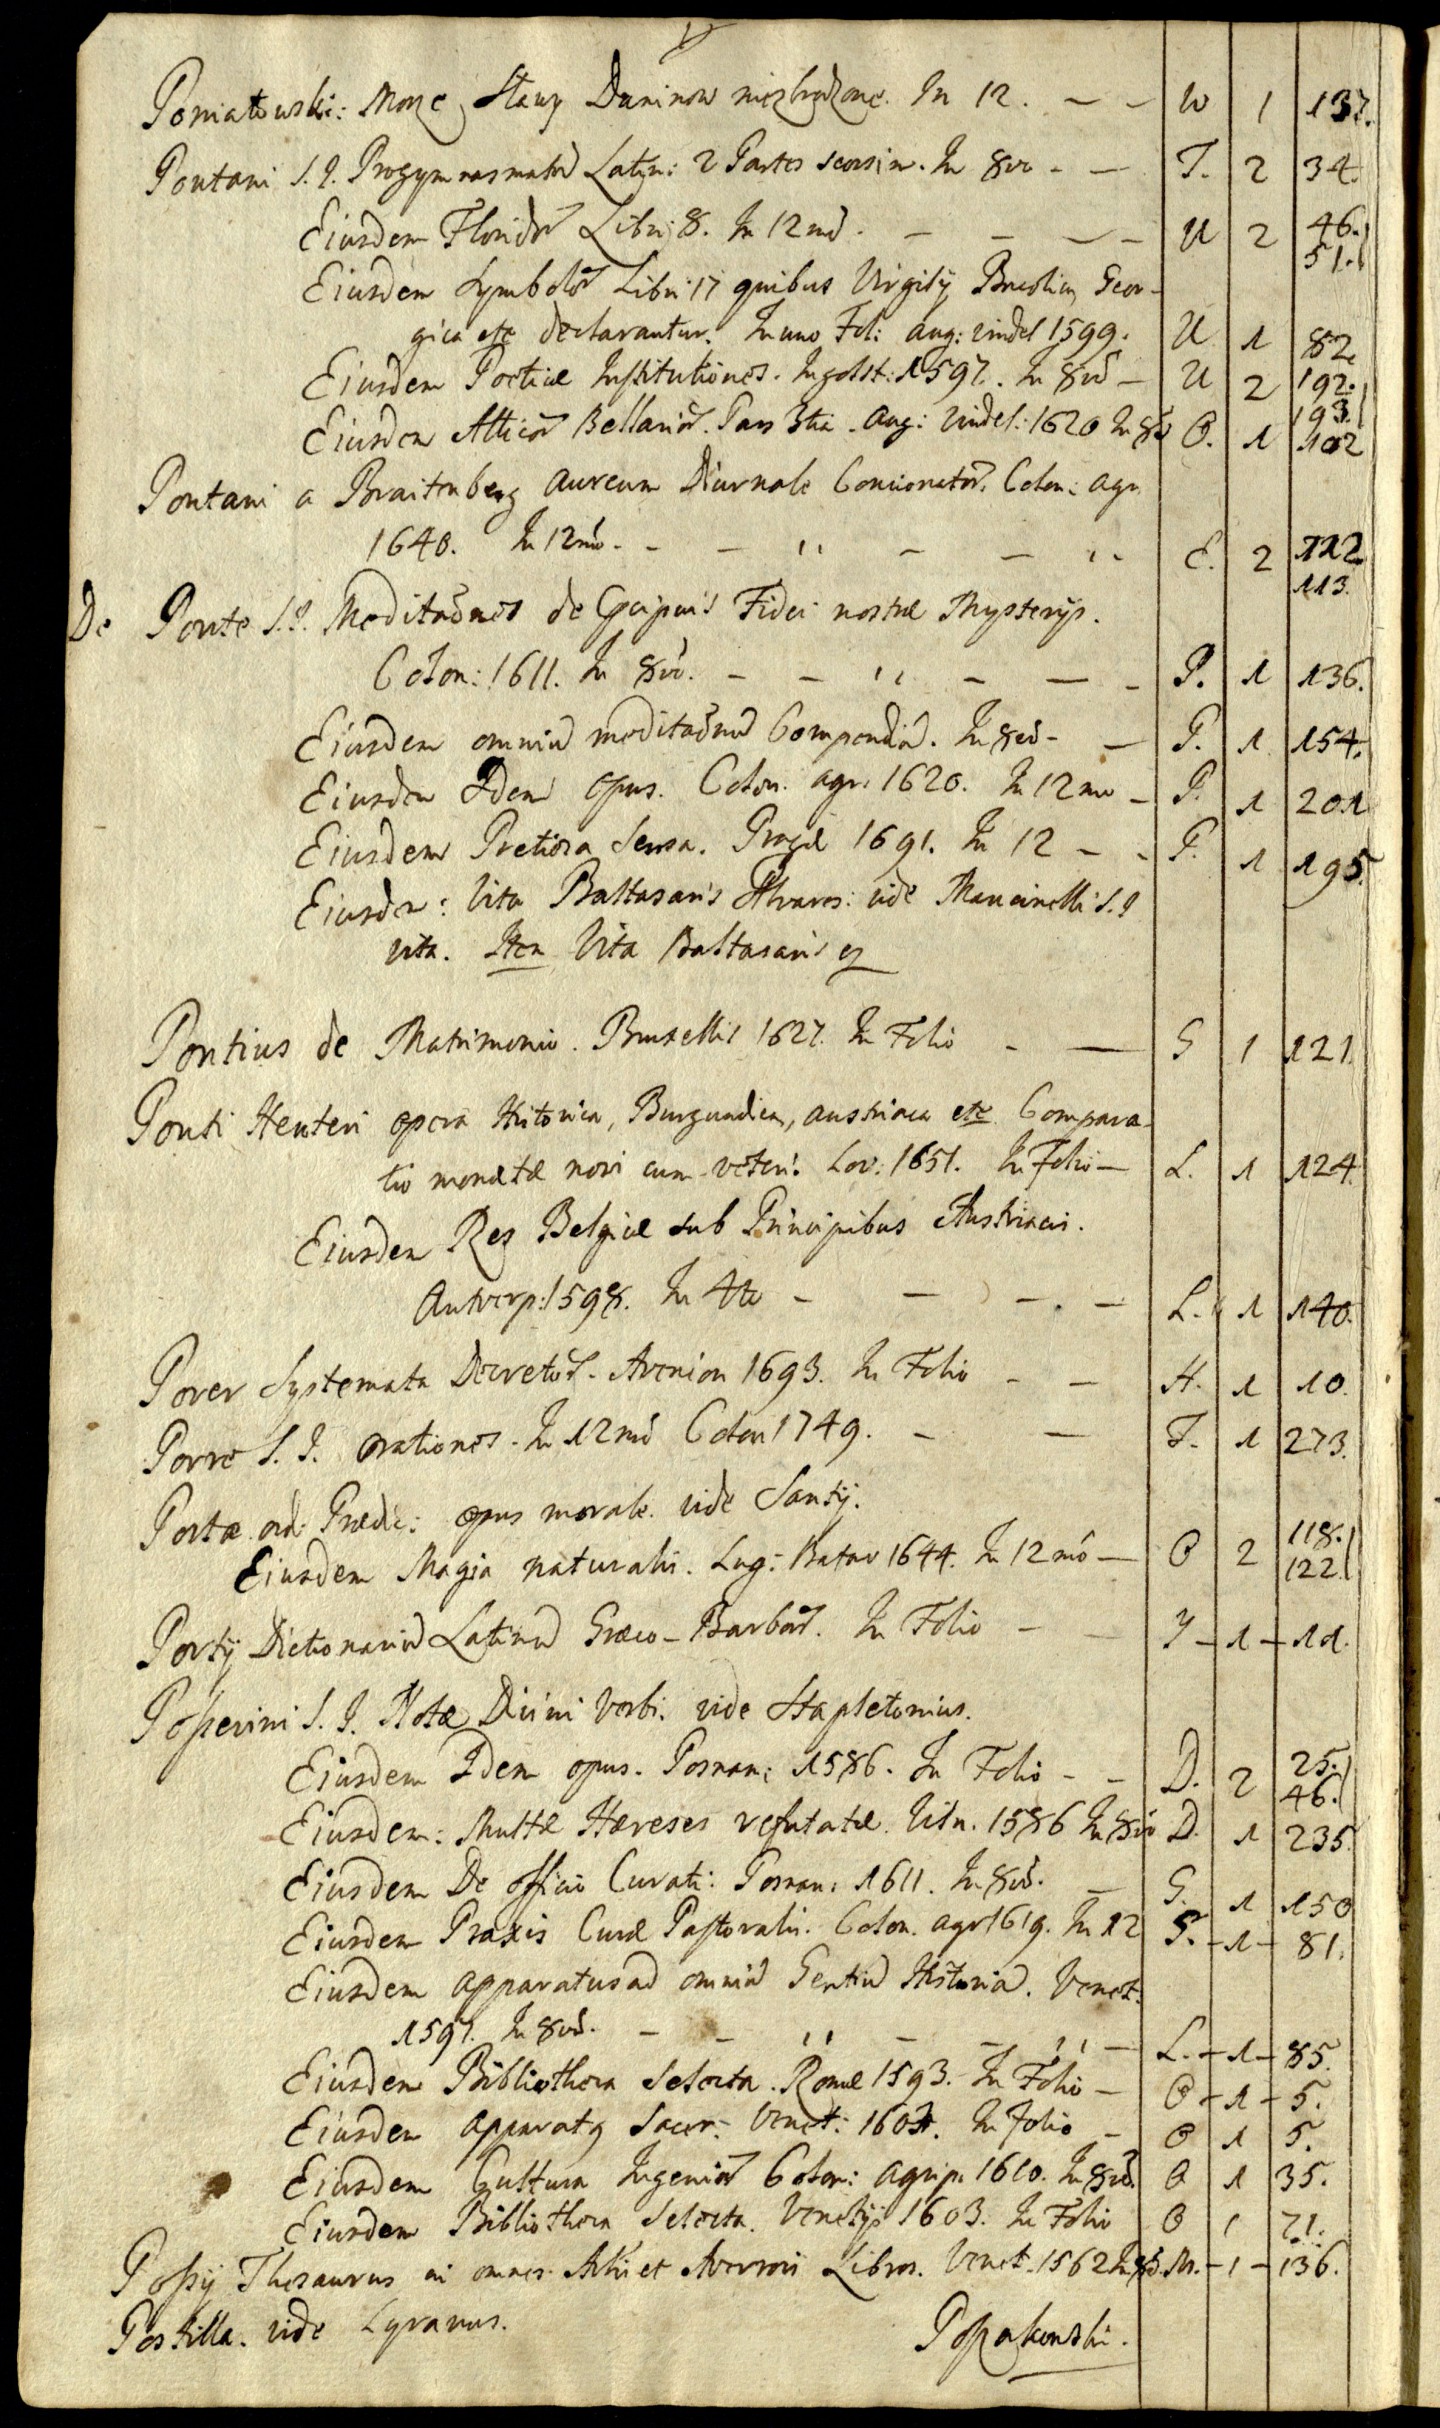 Poniatowski: Morze Sławy Duninow niezbrodzone. In 12. — — W 1 137.
Pontani S.J. Progymnasmatū Latin: 2 Partes seorsim. In 8vo — — T. 2 34.
Eiusdem Floridoꝝ Libri 8. In 12mō. — — — — U 2 46. 51.
Eiusdem Symboloꝝ Libri 17 quibus Virgilij Bucolica, Geor-
gica etc declarantur. In uno Fol: Aug: vindel 1599. U 1 82
Eiusdem Poeticæ Institutiones. Ingolst: 1597. In 8vō — U 2 192. 193.
Eiusdem Atticoꝝ Bellarioꝝ. Pars 3tia. Aug: Vindel: 1620 In 8vō O. 1 102
Pontani a Braitenberg Aureum Diurnale Concionatoꝝ. Colon: Agr
1640. In 12mō. — — ,, — — ,, E. 2 112 113.
De Ponte S.J. Meditaōnes de Præcipuis Fidei nostræ Mysterijs.
Colon: 1611. In 8vō. — — ,, — — — P. 1 136.
Eiusdem omniū meditaōnū Compendiū. In 8vō — — P. 1 154.
Eiusdem Idem opus. Colon. agr: 1620. In 12mo — P. 1 201
Eiusdem Pretiosa Sensa. Pragæ 1691. In 12 — — P. 1 195.
Eiusdem: Vita Baltasaris Alvares: vide Mancinelli S.J
vita. Item Vita Baltasaris
Pontius de Matrimonio. Bruxellis 1627. In Folio — — G 1 121.
Ponti Heuteri opera Historica, Burgundica, austriaca etc Compara-
tio monetæ novi cum veteri. Lov: 1651. In Folio — L. 1 124.
Eiusdem Res Belgicæ sub Principibus Austriacis.
Antverp: 1598. In 4to — — — — L. 1 140.
Porer Systemata Decretoꝝ. Avenion 1693. In Folio — — H. 1 10.
Porre S.J. orationes. In 12mō Colon 1749. — — T. 1 273.
Portæ ord: Prædic: opus morale. vide Santij.
Eiusdem Magia naturalis. Lug: Batav 1644. In 12mō — O 2 118. 122.
Portij Dictionariū Latinū Græco-Barbaꝝ. In Folio — — Y — 1 — 11.
Possevini S.J. Notæ Divini Verbi. vide Stapletonius.
Eiusdem Idem opus. Posnan: 1586. In Folio — — D. 2 25. 46.
Eiusdem: Multæ Hæreses refutatæ. Viln. 1586 In 8vō D. 1 235.
Eiusdem De officio Curati: Posnan: 1611. In 8vō. — G. 1 150
Eiusdem Praxis Curæ Pastoralis. Colon. agr 1619. In 12 — 1 — 81.
Eiusdem apparatus ad omniū Gentiū Historiā. Venet:
1597. In 8vō. — — ,, — — ,, — L. — 1 — 85.
Eiusdem Bibliotheca Selecta. Romæ 1593. In Folio — O — 1 — 5.
Eiusdem apparatꝰ Sacer. Venet: In Folio — O 1 5.
Eiusdem Cultura Ingenioꝝ Colon: Agrip: 1610. In 8vō. O 1 35.
Eiusdem Bibliotheca Selecta. Venetijs 1603. In Folio O 1 71.
Possij Thesaurus in omnes Arist et Averrois Libros. Venet. 1562 In 8vō. M. — 1 — 136.
Postilla. vide Lyranus.
Poszakowski.